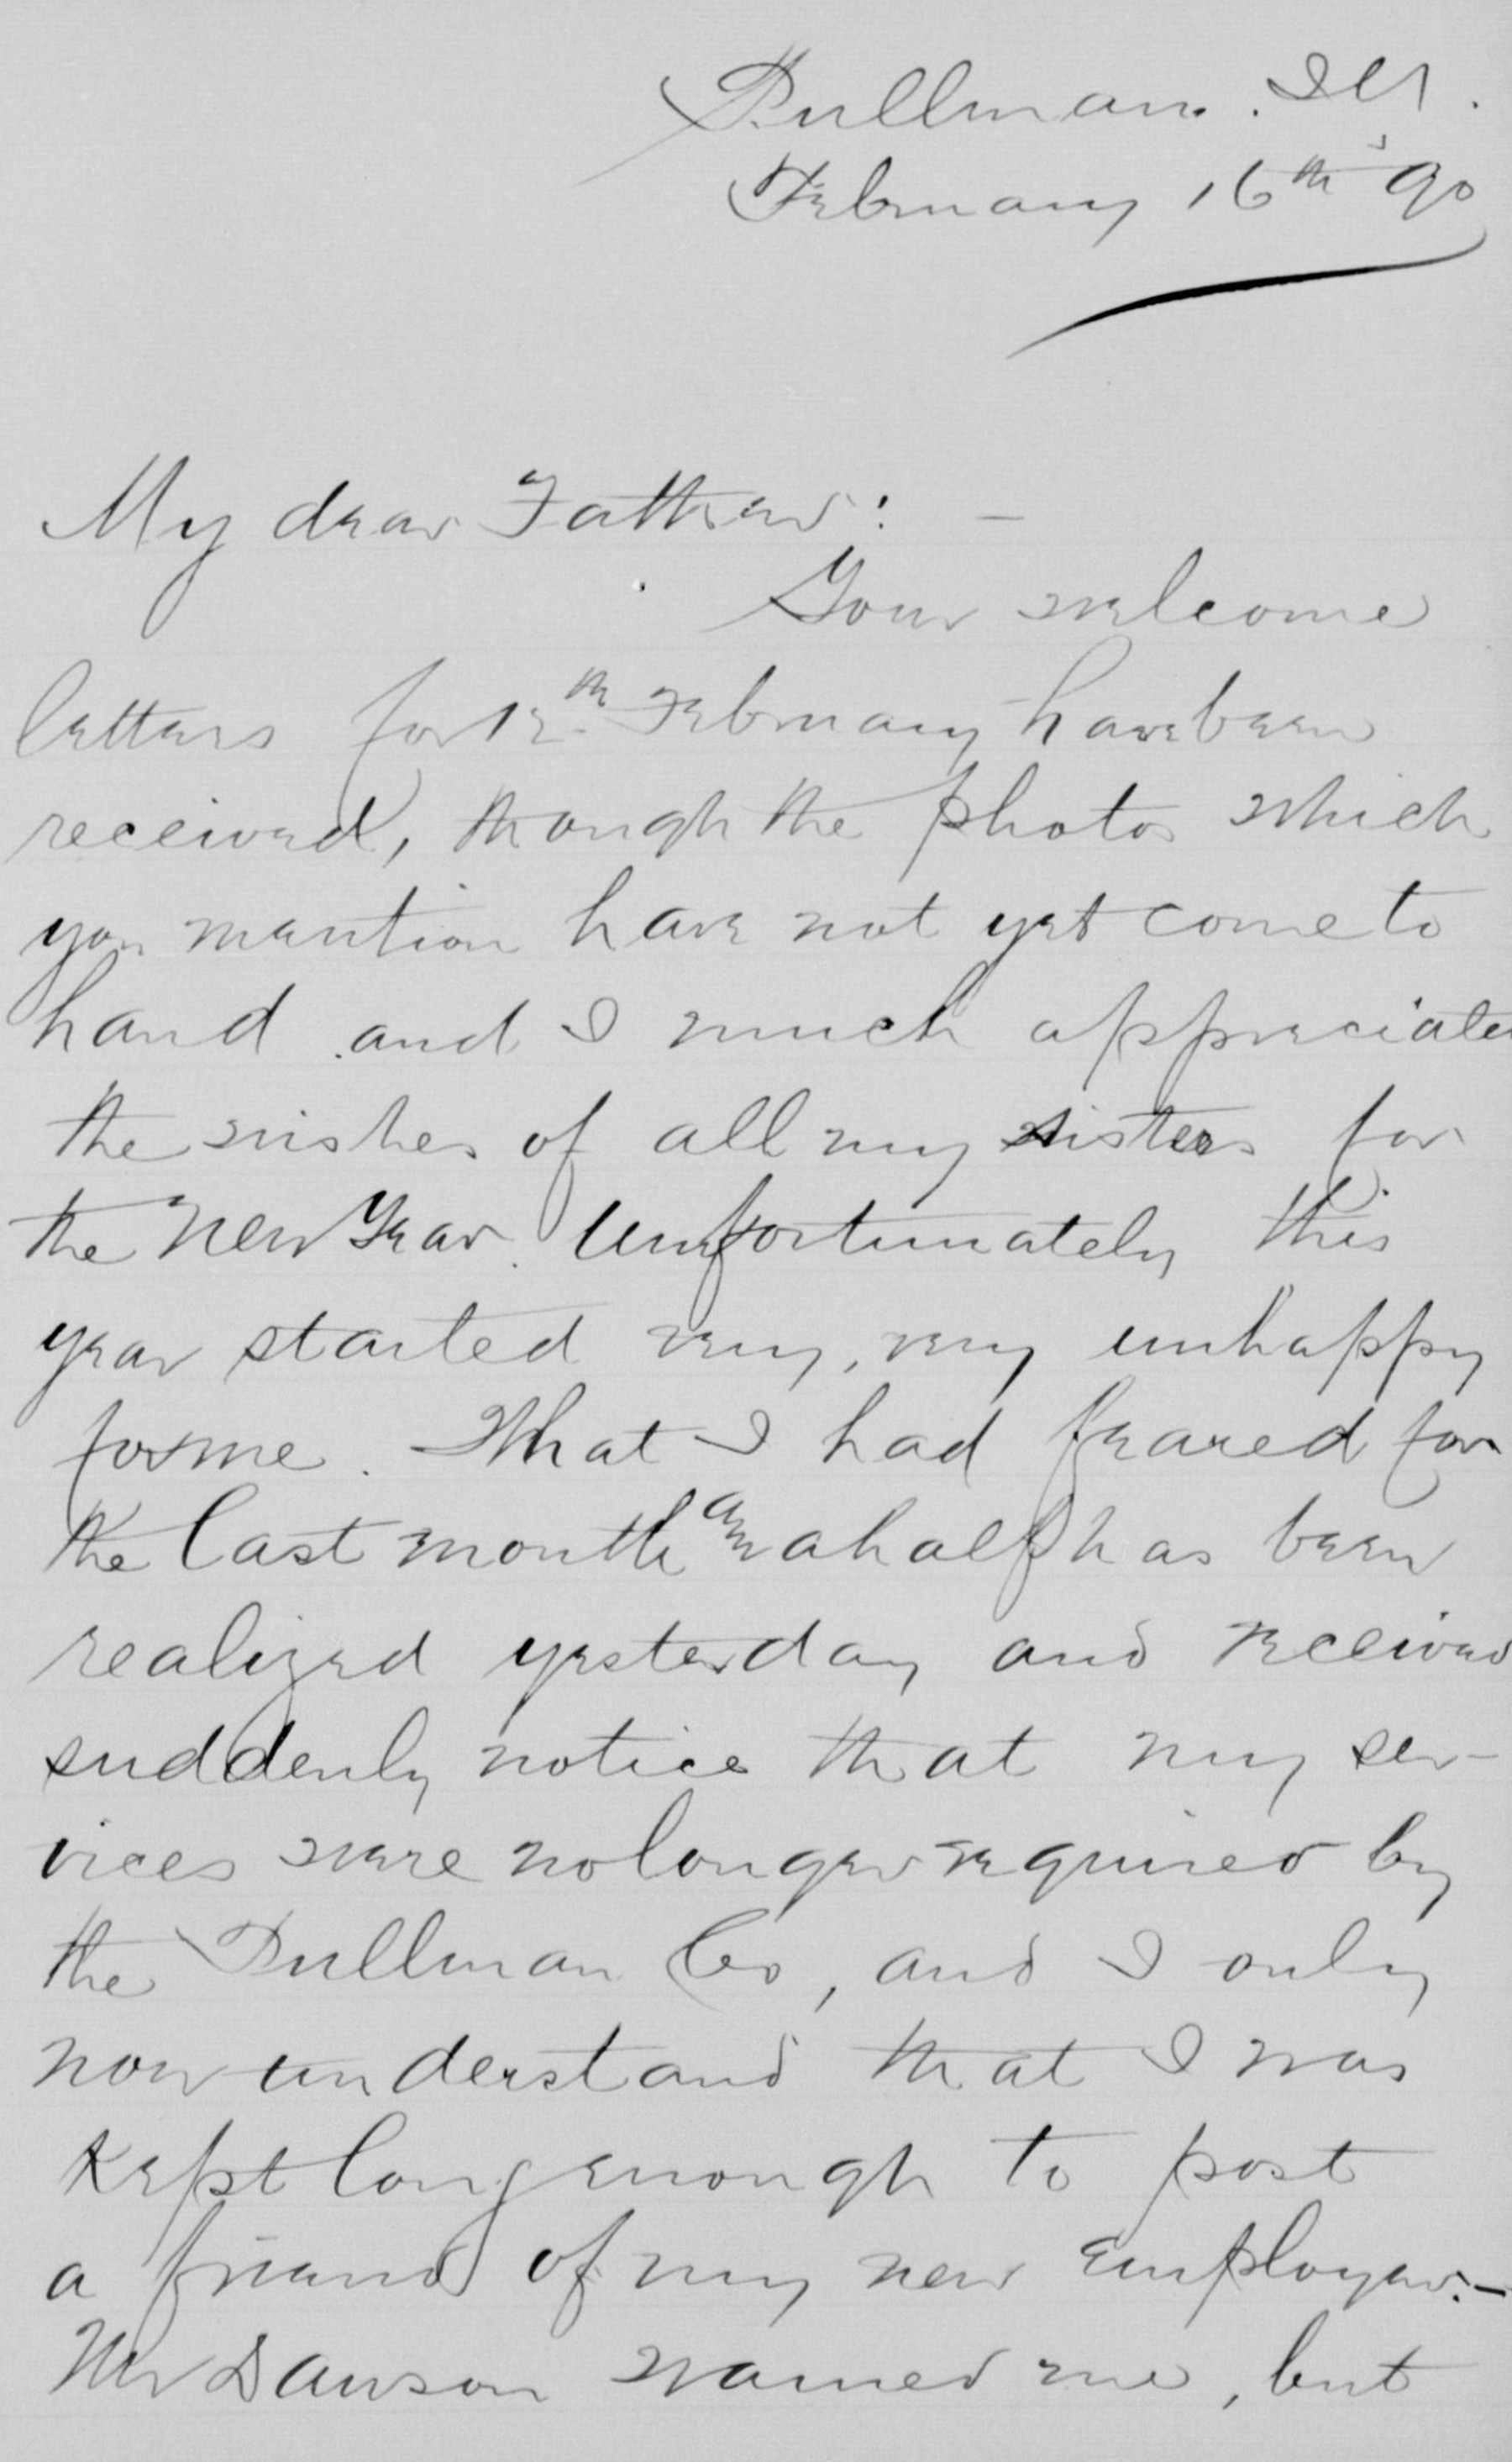 Pullman. Ill.
February 16th '90
My dear Father: —
Your welcome
letters for 12th February have been
received, though the photos which
you mention have not yet come to
hand and I much appreciate
the wishes of all my sisters for
the New Year. Unfortunately this
year started very, very unhappy
for me. What I had feared for
the last month and a half has been
realized yesterday and received
suddenly notice that my ser-
vices were no longer required by
the Pullman Co, and I only
now understand that I was
kept long enough to post
a friend of my new employer.—
Mr Dawson warned me, but